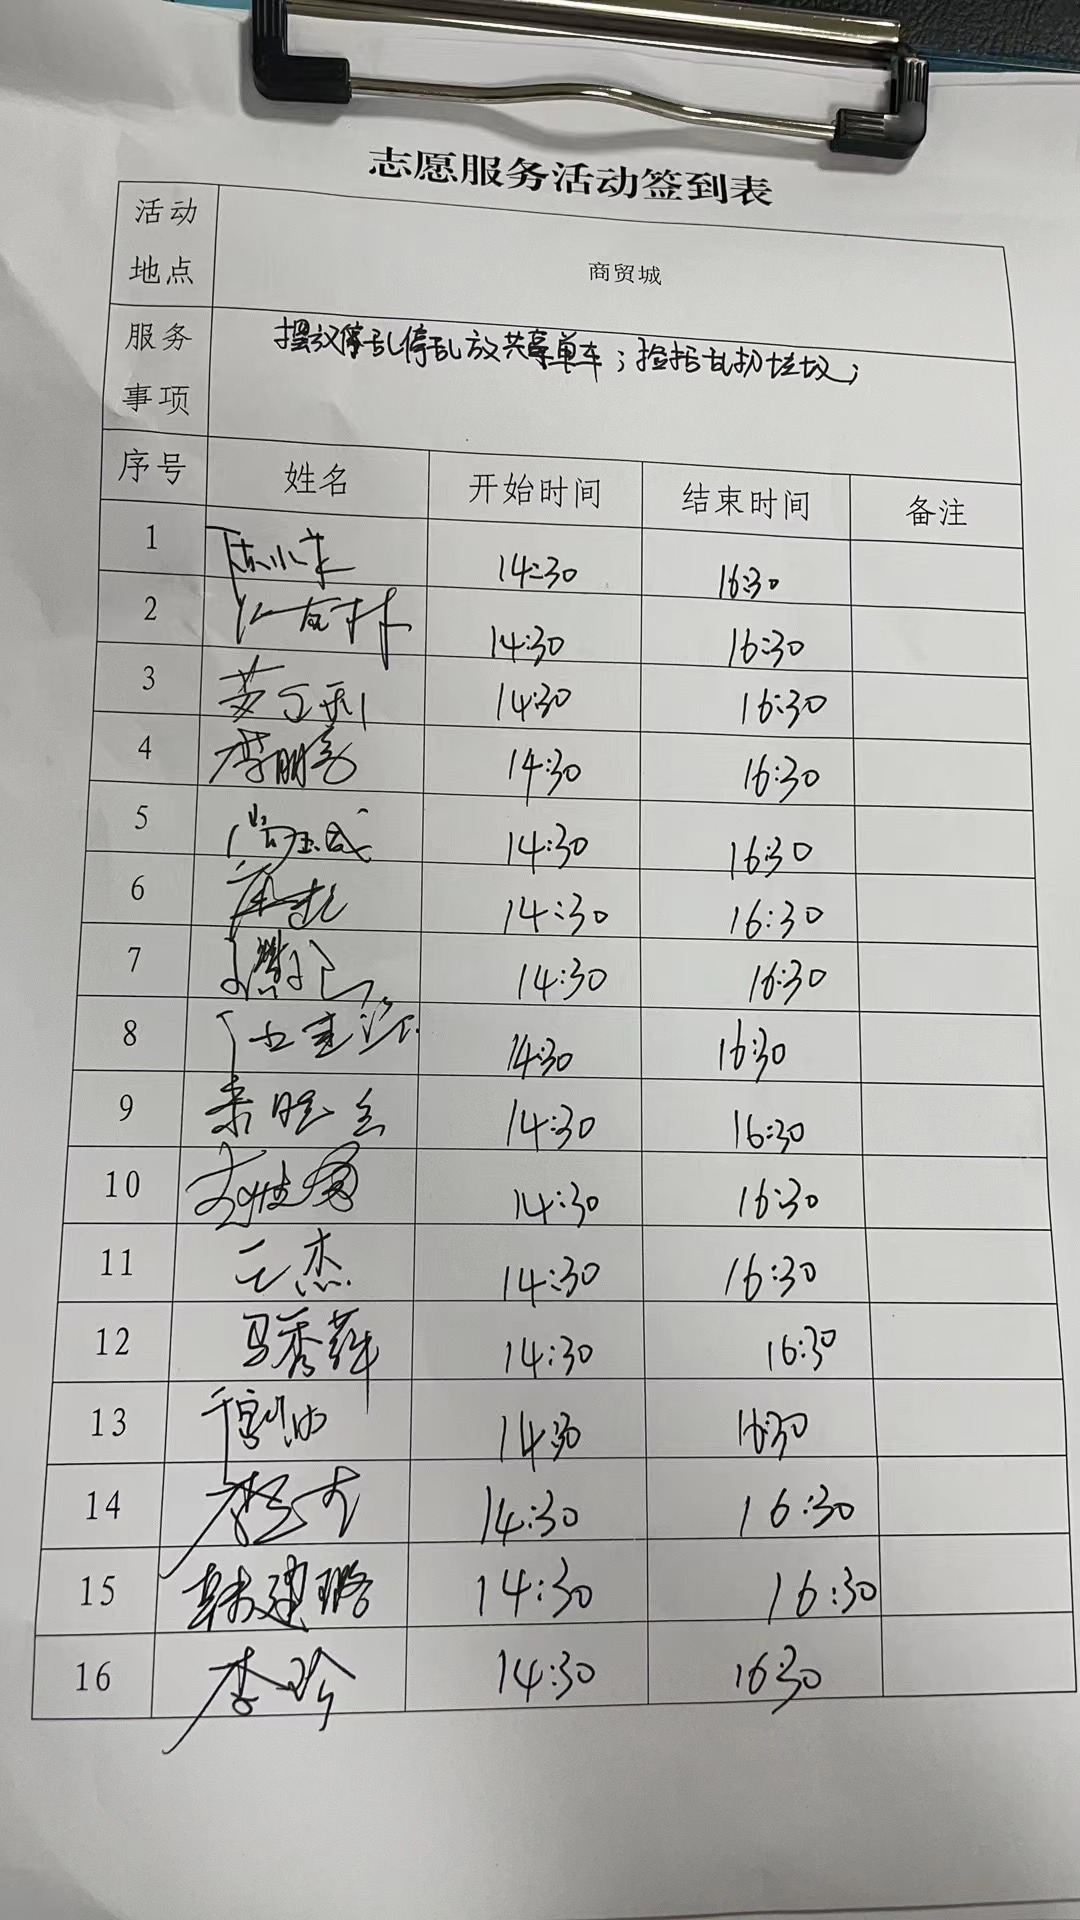 志愿服务活动签到表
活动地点 商贸城
服务事项 摆放停乱停乱放共享单车；捡拾乱扔垃圾；
序号 姓名 开始时间 结束时间 备注
1 14:30 16:30
2 14:30 16:30
3 14:30 16:30
4 李鹏 14:30 16:30
5 14:30 16:30
6 14:30 16:30
7 14:30 16:30
8 14:30 16:30
9 14:30 16:30
10 14:30 16:30
11 王杰 14:30 16:30
12 马秀萍 14:30 16:30
13 14:30 16:30
14 14:30 16:30
15 韩建璐 14:30 16:30
16 李珍 14:30 16:30